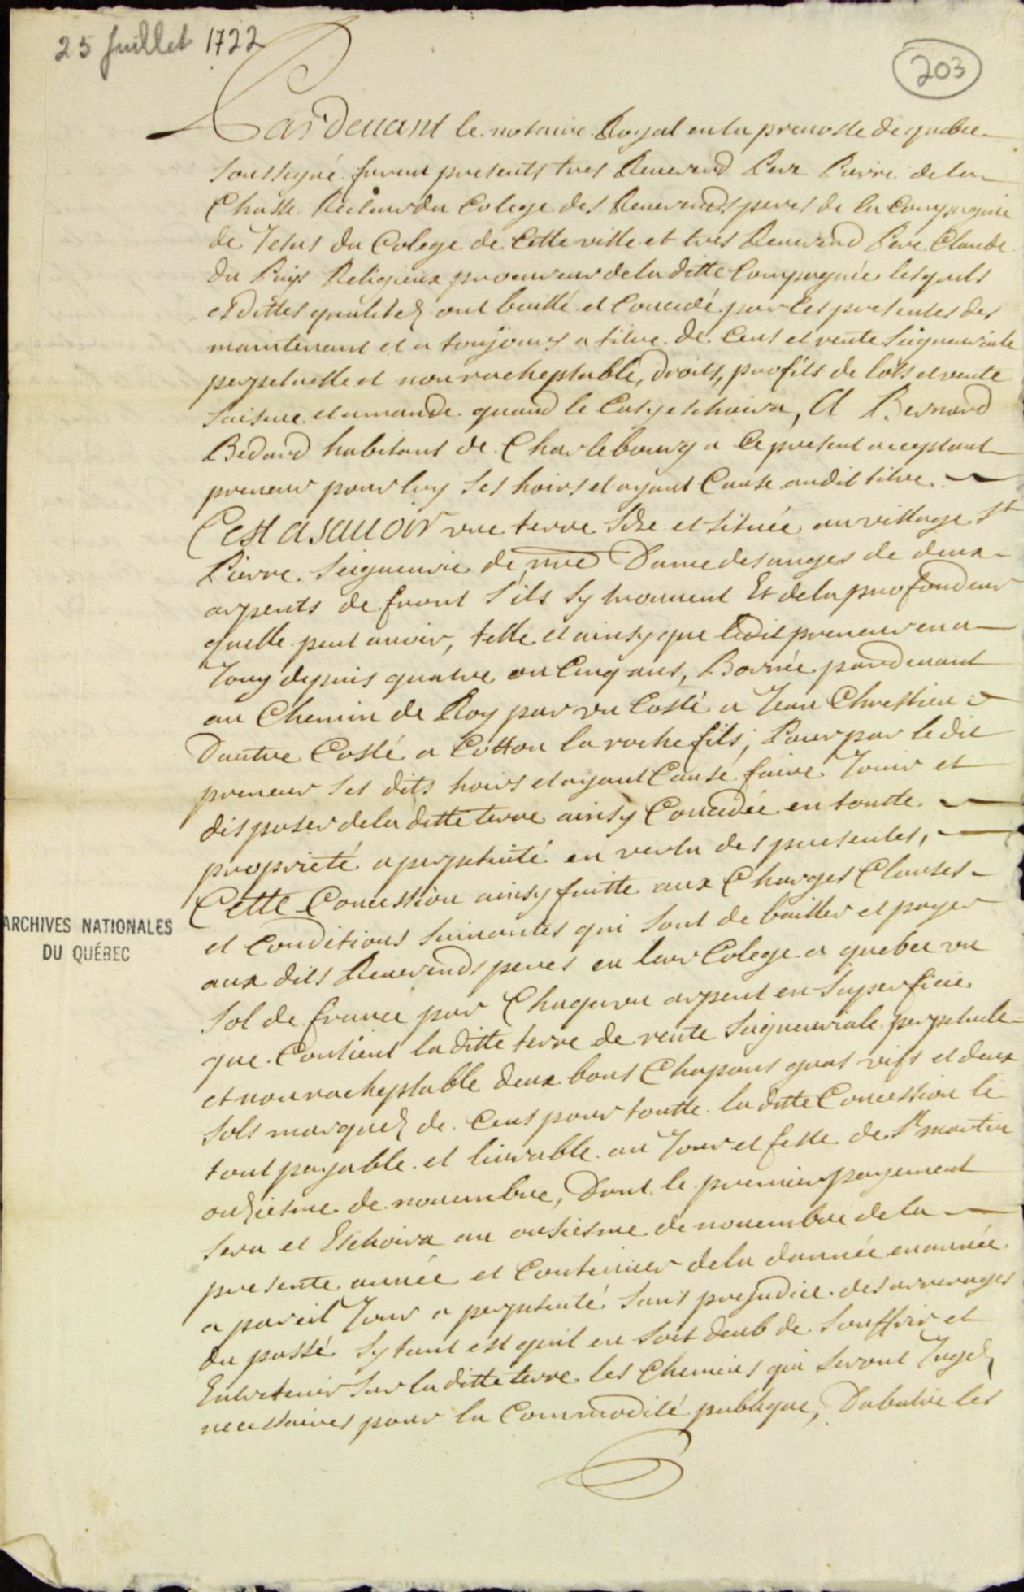 25 Juillet 1722
203
Pardevant le notaire Royal en la prevosté de quebec
soussigné furent presents tres Reverend Pere Pierre de la
Chasse Recteur du Colege des Reverends peres de la Compagnie
de Jesus du Colege de Cette ville et tres Reverend Pere Claude
du Puys Religieux procureur de la ditte Compagnie lesquels
esdittes qualitez ont baillé et Concedé par les presentes des
maintenant et a toujours a titre de Cens et rente Seigneuriale
perpetuelle et non racheptable, droits, profits de lots et vente
saisine et amande quand le Cas y eschoira, A Bernard
Bedard habitant de Charlebourg a Ce present acceptant
preneur pour luy ses hoirs et ayant Cause audit titre
Cest asauoir vne terre Size et située au village St
Pierre Seigneurie de nre Dame des anges de deux
arpents de front s'ils sy trouuent Et de la profondeur
quelle peut auoir, telle et ainsy que ledit preneur en a
Jouy depuis quatre ou Cinq ans, Bornée pardeuant
au Chemin de Roy par vn Costé a Jean Chrestien &
Dautre Costé a Cotton la roche fils; Pour par le dit
preneur ses dits hoirs et ayant Cause faire Jouir et
disposer de la ditte terre ainsy Concedée en toutte
proprieté a perpetuité en vertu des presentes,
Cette Concession ainsy faitte aux Charges Clauses
et Conditions suiuantes qui sont de bailler et payer
aux dits Reuerends peres en leur Colege a quebec vn
sol de france par Chaqu'un arpent en superficie
que Contient la ditte terre de rente Seigneuriale perpetuele
et non racheptable deux bons Chapons gras vifs et deux
sols marquez de Cens pour toutte la ditte Concession le
tout payable et liurable au Jour et feste de St martin
onziesme de nouembre, Dont le premier payement
sera et Eschoira au onsiesme de nouembre de la
presente année et Continuer de la dannée en année
a pareil Jour a perpetuité sans prejudice des arrerages
du passé sy tant est quil en soit deub de souffrir et
Entretenir sur la ditte terre les Chemins qui seront Jugez
necessaires pour la Commodité publique, Dabatre les
ARCHIVES NATIONALES
DU QUÉBEC